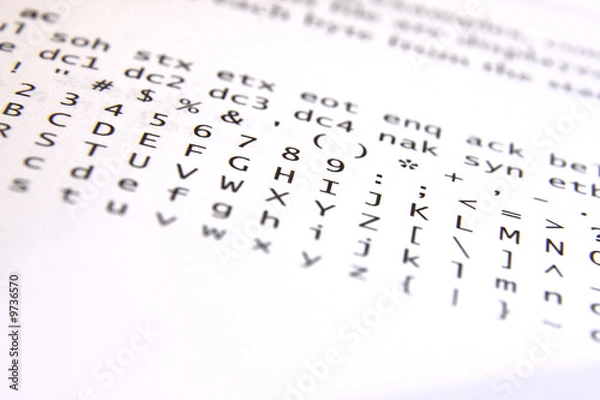 each byte from the
ac
ul soh stx etx eot enq ack bel
e dc1 dc2 dc3 dc4 nak syn etb
! " # $ % & ' ( ) * + , - .
2 3 4 5 6 7 8 9 : ; < = >
B C D E F G H I J K L M N O
R S T U V W X Y Z [ \ ] ^ _
c d e f g h i j k l m n o
s t u v w x y z { | } ~
Adobe Stock | #9736570